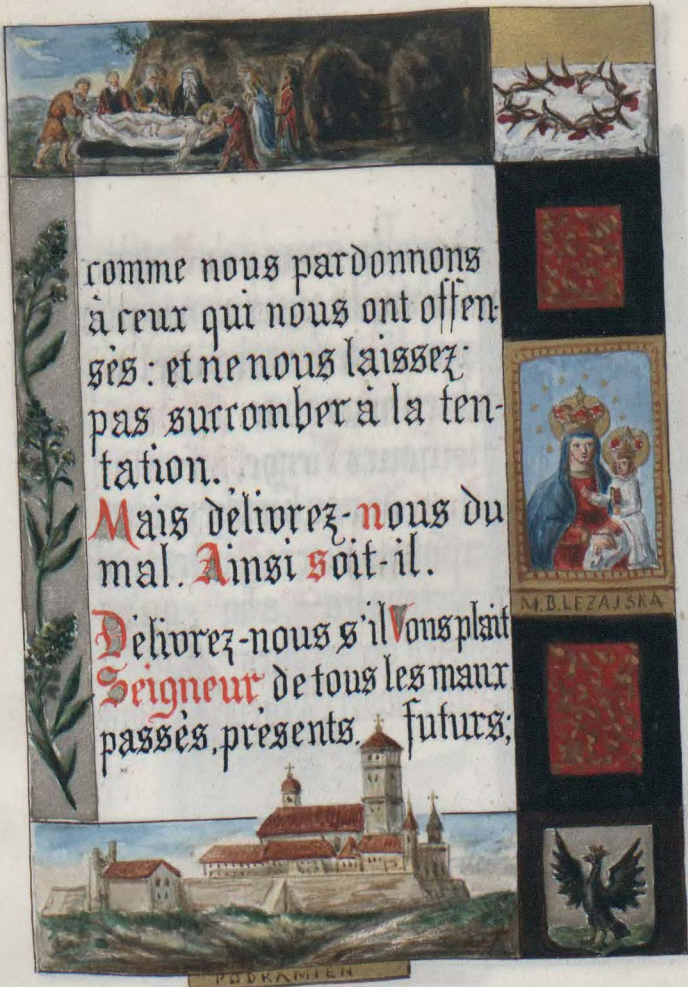 comme nous pardonnons
à ceux qui nous ont offen-
sès : et ne nous laissez
pas succomber à la ten-
tation.
Mais dèlivrez-nous du
mal. Ainsi soit-il.
Dèlivrez-nous s'il Vous plait
Seigneur de tous les maux
passès, prèsents. futurs;
M.B.LEZAJSKA
PODKAMIEN